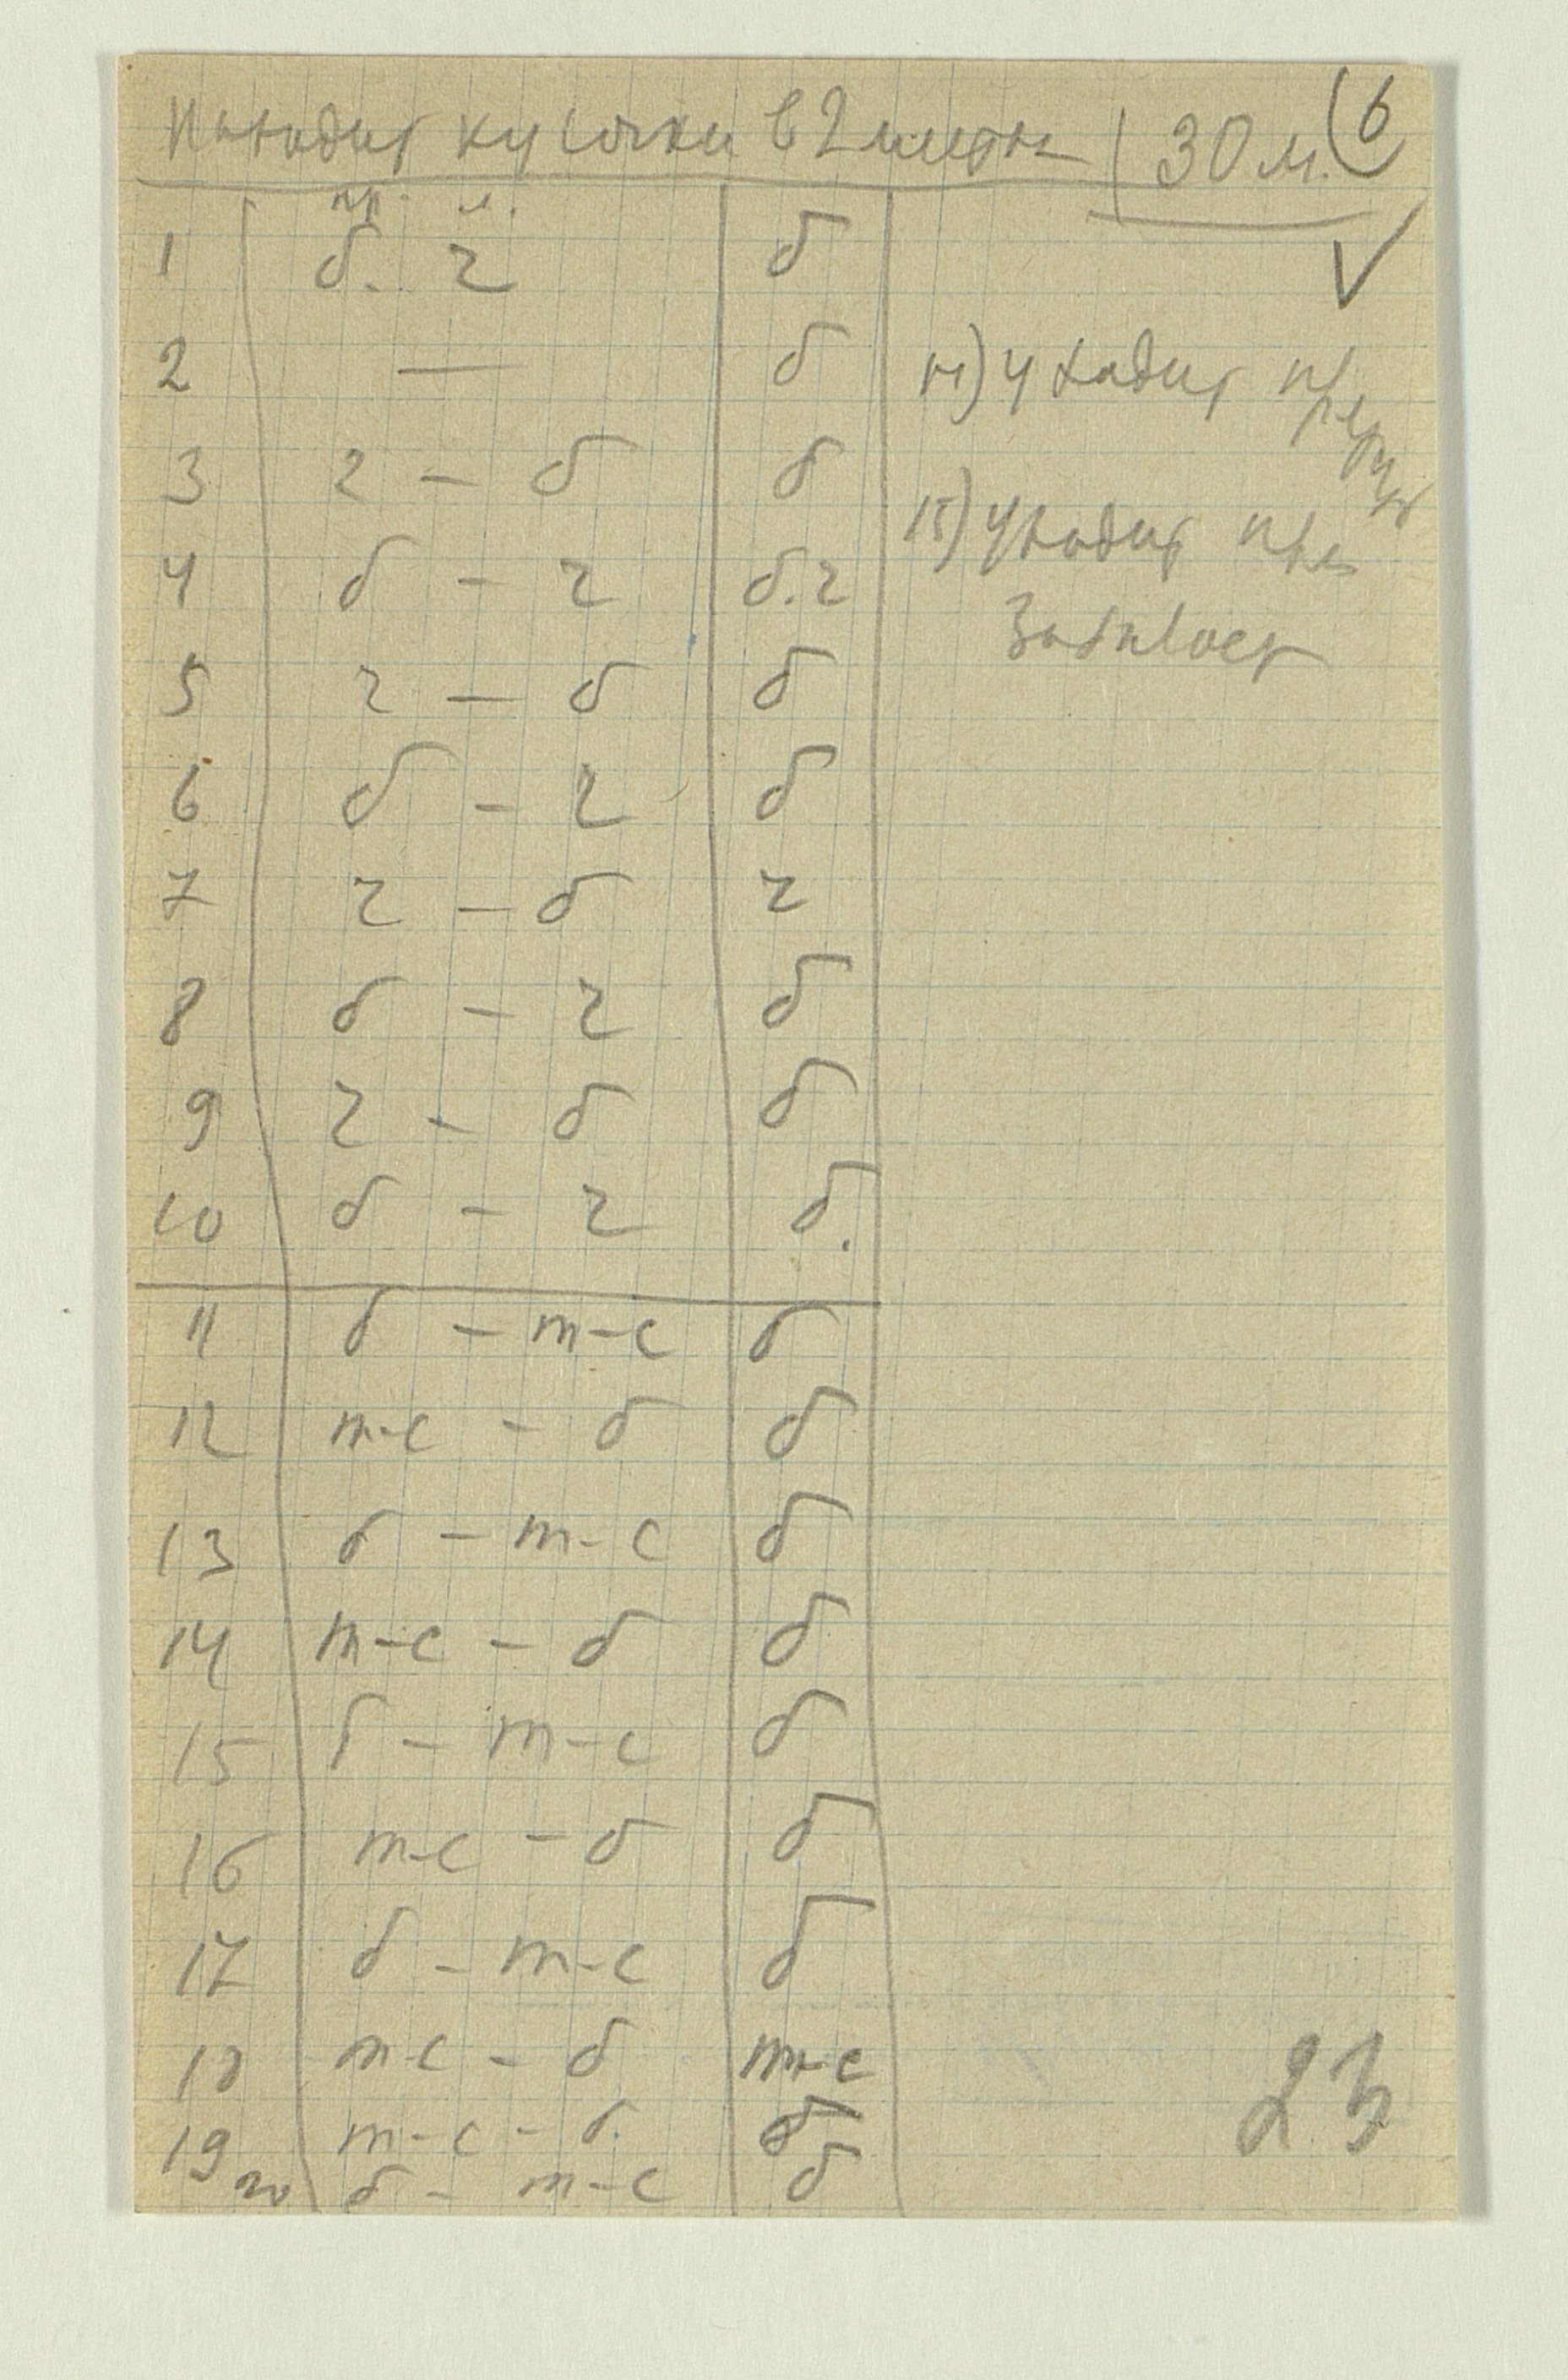 Находит кусочки в 2 метра 30 м. (6
пр. л.
1 б. ч б
2 — б
3 ч – б б
4 б – ч б.ч
5 ч – б б
6 б – ч б
7 ч – б ч
8 б – ч б
9 ч – б б
10 б – ч б.
11 б – т-с б
12 т-с – б б
13 б – т-с б
14 т-с – б б
15 б – т-с б
16 т-с – б б
17 б – т-с б
18 т-с – б т-с
19 т-с – б б
20 б – т-с б
14) уходит
15) уходит
23